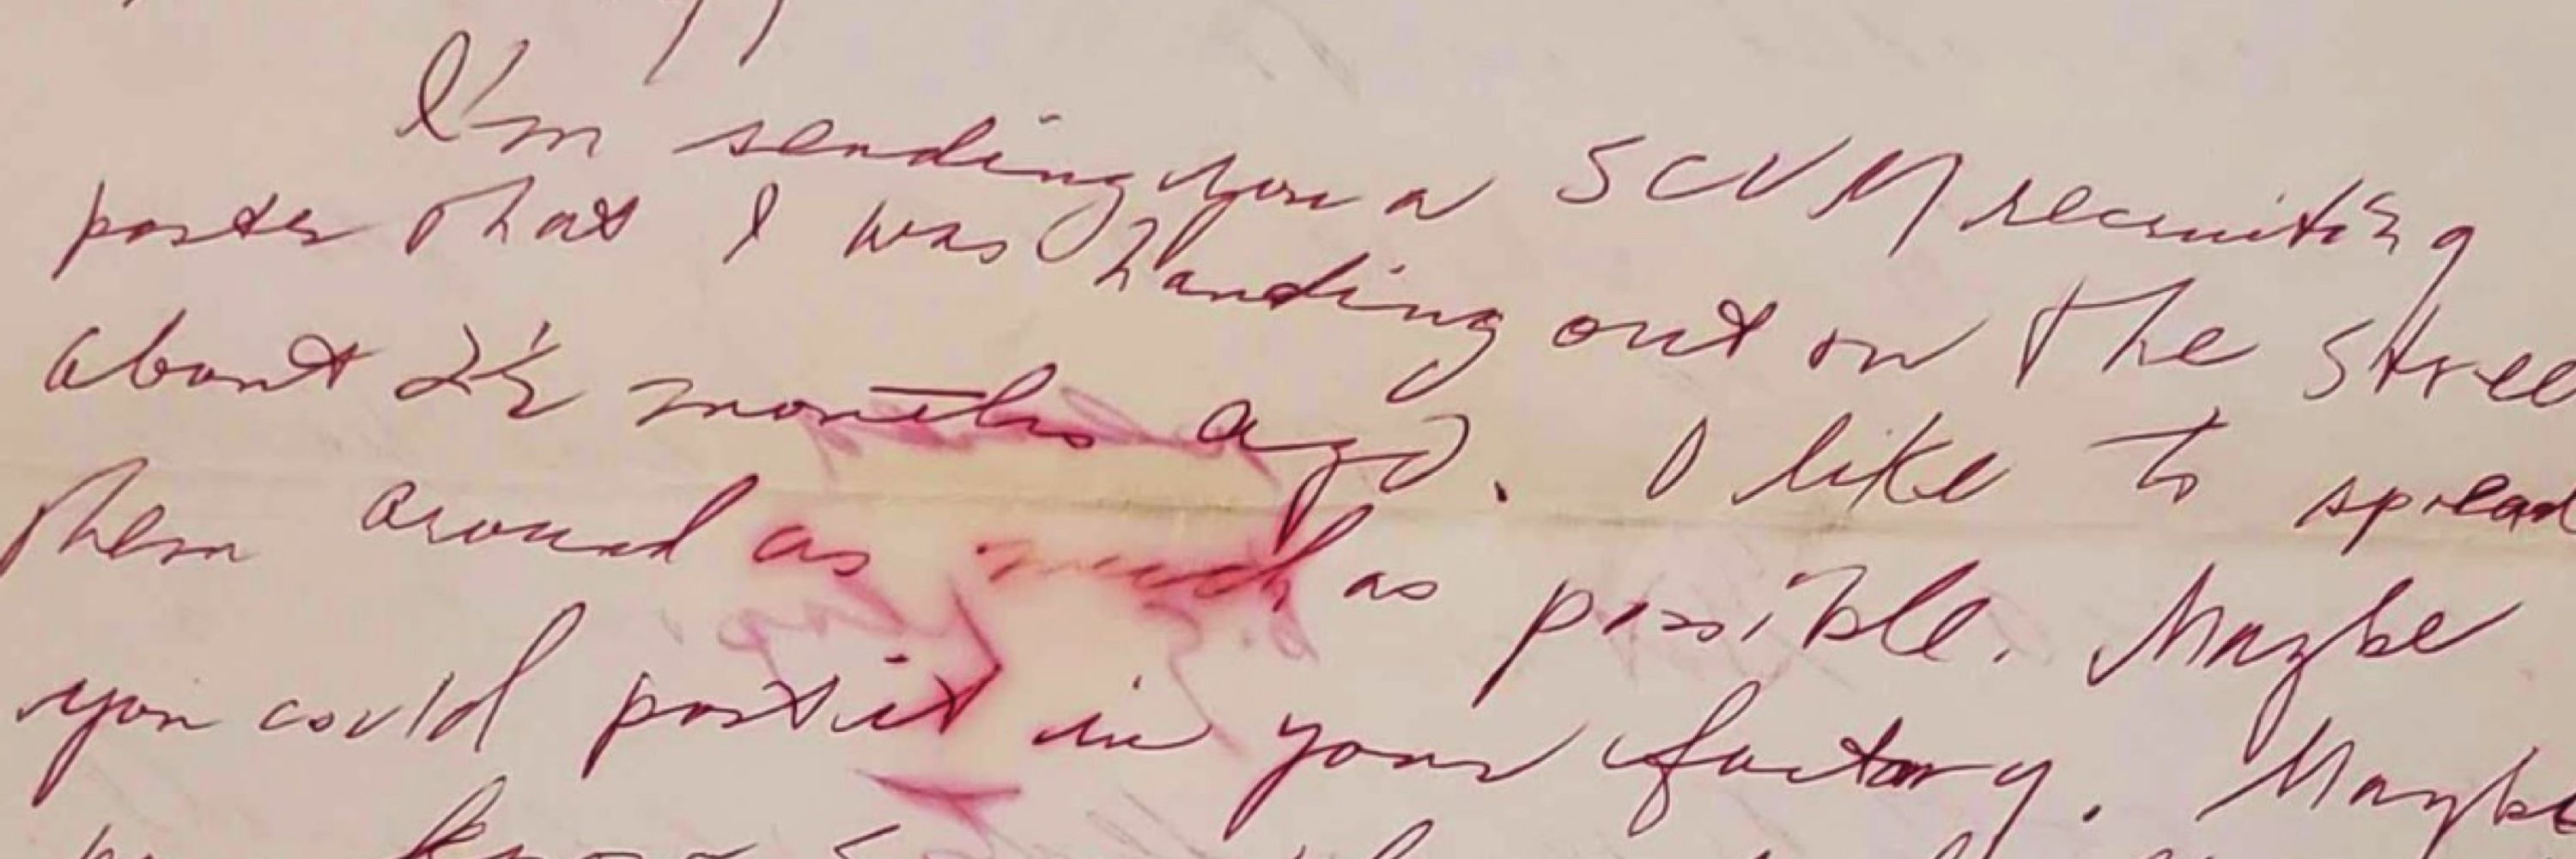 I'm sending you a SCUM recruiting
poster that I was handing out on the stree
about 2½ months ago. I like to spread
them around as much as possible. Maybe
you could post it in your factory. Maybe